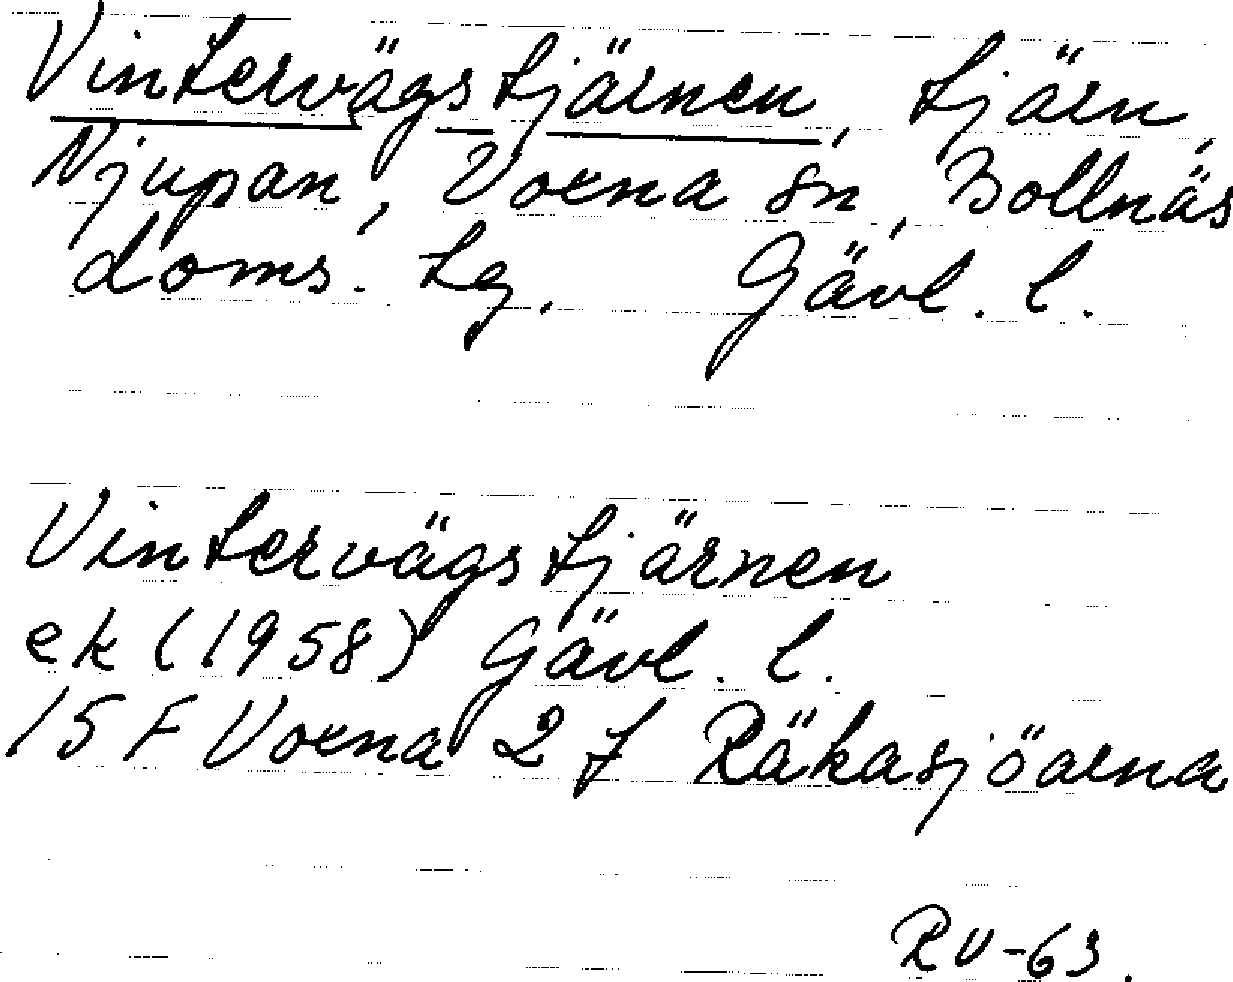 Vintervägstjärnen, tjärn,
Njupan, Voxna sn, Bollnäs
doms. lg. Gävl. l.
Vintervägstjärnen
ek (1958) Gävl. l.
15 F Voxna 2 f Räkasjöarna
RV-63.